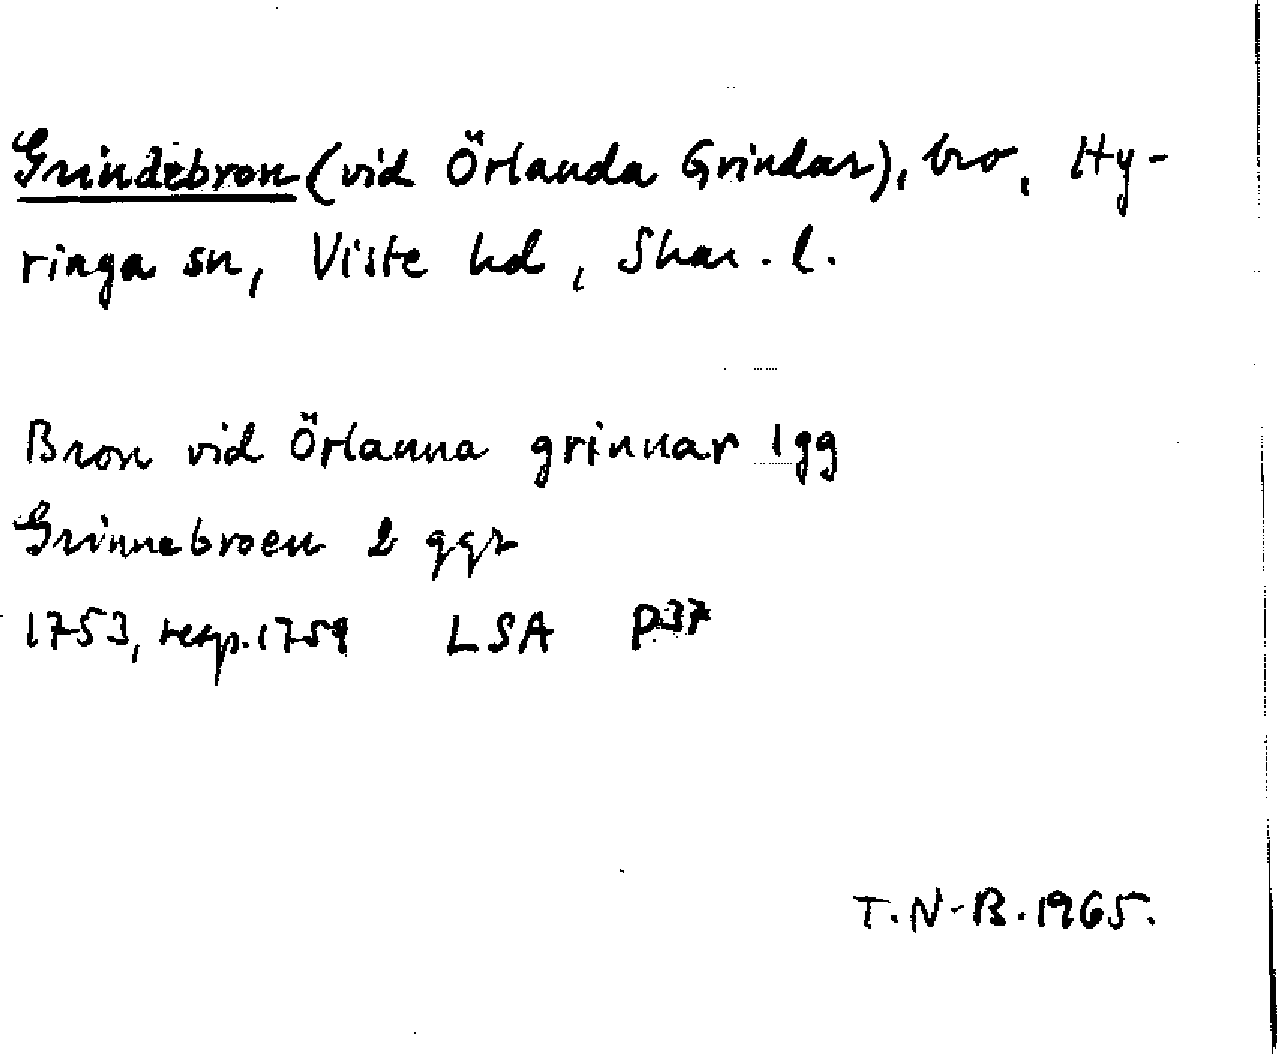 Grindebron (vid Örlanda Grindar), bro, Hy-
ringa sn, Viste hd, Skar. l.
Bron vid Örlanna grinnar 1 gg
Grinnebroen 2 ggr
1753, resp. 1759 LSA P37
T. N-B. 1965.